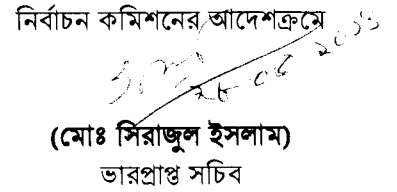 নির্বাচন কমিশনের আদেশক্রমে
(মোঃ সিরাজুল ইসলাম)
ভারপ্রাপ্ত সচিব